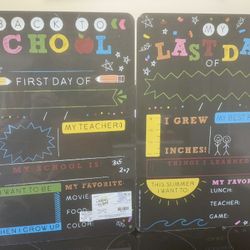 BACK TO
SCHOOL
FIRST DAY OF
MY TEACHER
MY SCHOOL IS:
I WANT TO BE
WHEN I GROW UP
MY FAVORITE
MOVIE
FOOD
COLOR:
MY
LAST DAY
OF
I GREW
INCHES!
MY BEST
THINGS I LEARNED
THIS SUMMER
I WANT TO:
MY FAVORITE
LUNCH:
TEACHER:
GAME: